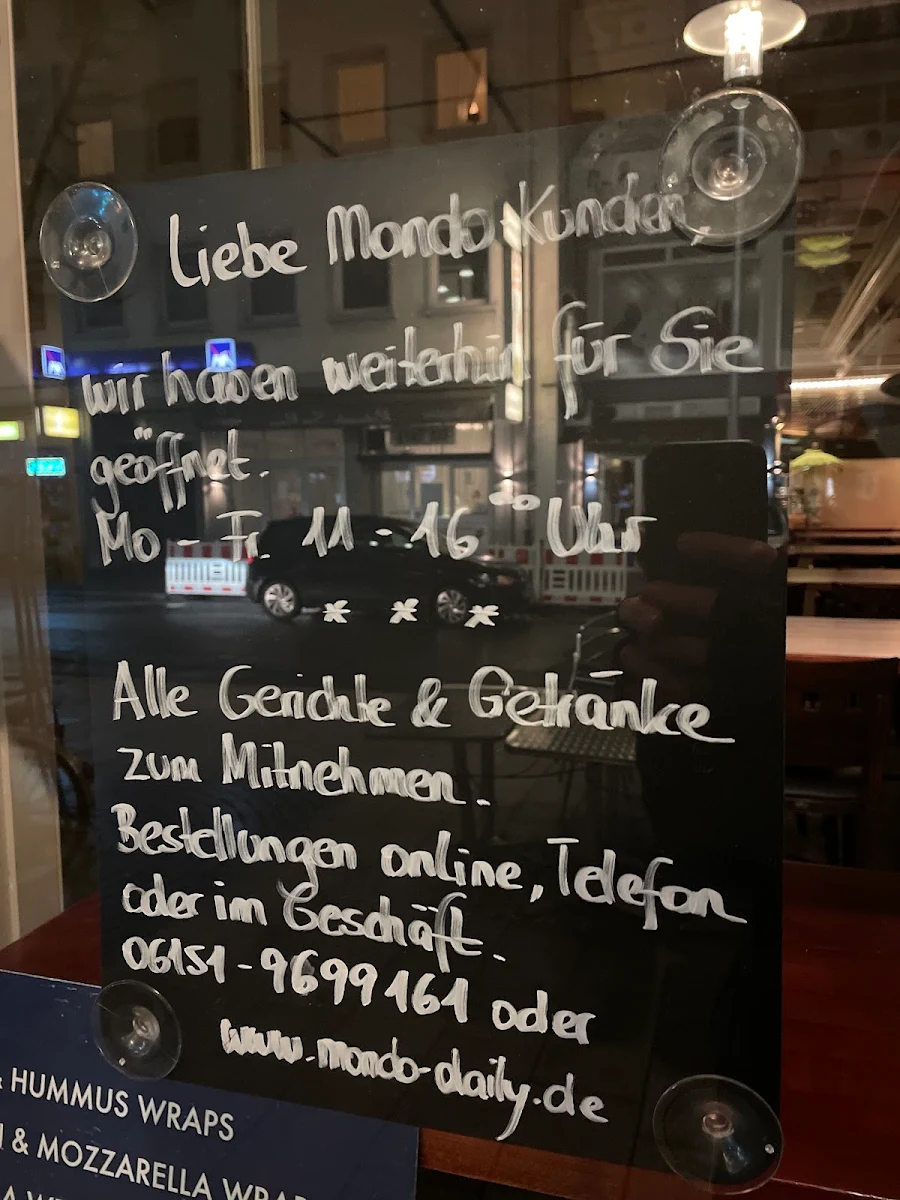 Liebe Mondo Kunden
wir haben weiterhin für Sie
geöffnet.
Mo - Fr. 11 - 16°° Uhr
* * *
Alle Gerichte & Getränke
zum Mitnehmen.
Bestellungen online, Telefon
oder im Geschäft.
06151-9699161 oder
www.mondo-daily.de
& HUMMUS WRAPS
& MOZZARELLA